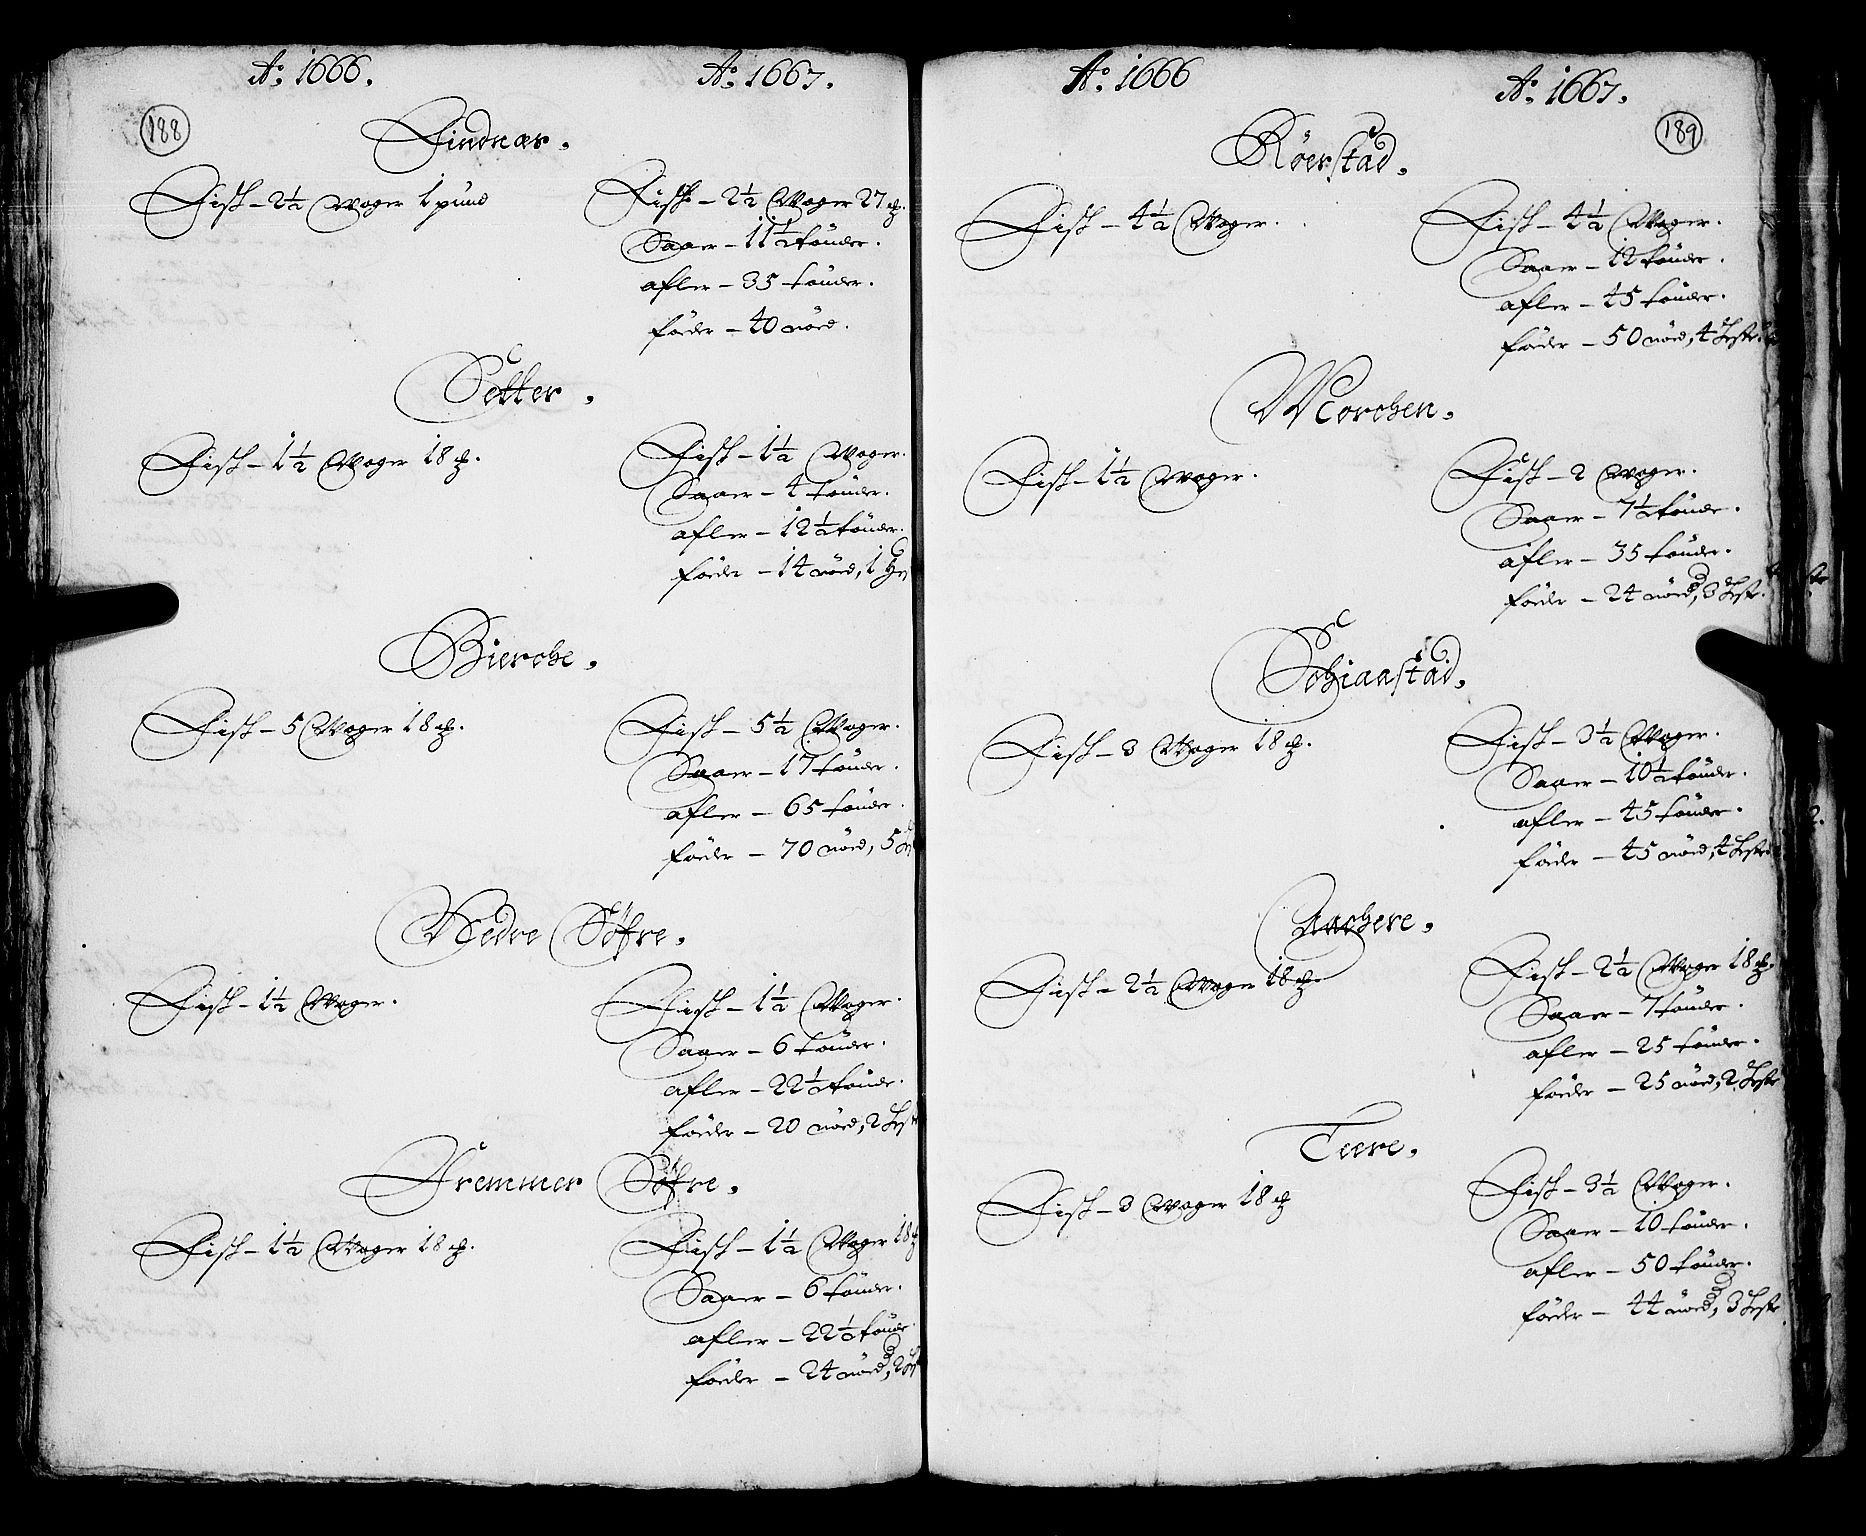 Ao. 1666. Ao. 1667.
188
Findnæs.
Fisk – 2½ Woger 1 pund
Fisk – 2½ Woger 27 ꝶ.
Saaer – 11½ tönder.
afler – 35 tönder.
föder – 40 nöed.
Setter.
Fisk – 1½ Woger 18 ꝶ.
Fisk – 1½ Woger.
Saaer – 4 tönder.
afler – 12½ tönder.
föder – 14 nöed, 1 Hes
Bierche.
Fisk – 5 Woger 18 ꝶ.
Fisk – 5½ Woger.
Saaer – 17 tönder.
afler – 65 tönder.
föder – 70 nöed, 5 Hes
Nedre Söfre.
Fisk – 1½ Woger.
Fisk – 1½ Woger.
Saaer – 6 tönder.
afler – 22½ tönder.
föder – 20 nöed, 2 Hest
Fremmer Söfre.
Fisk – 1½ Woger 18 ꝶ.
Fisk – 1½ Woger 18 ꝶ
Saaer – 6 tönder.
afler – 22½ tönder.
föder – 24 nöed, 2 Hes
Ao. 1666 Ao. 1667.
189
Röerstad.
Fisk – 4½ Woger.
Fisk – 4½ Woger.
Saaer – 12 tönder.
afler – 45 tönder.
föder – 50 nöed, 4 Heste.
Morchen.
Fisk – 1½ Woger.
Fisk – 2 Woger.
Saaer – 7½ tönder.
afler – 35 tönder.
föder – 24 nöed, 3 Heste.
Schiaastad.
Fisk – 3 Woger 18 ꝶ.
Fisk – 3½ Woger.
Saaer – 10½ tönder.
afler – 45 tönder.
föder – 45 nöed, 4 Heste
Aachere.
Fisk – 2½ Woger 18 ꝶ.
Fisk – 2½ Woger 18 ꝶ.
Saaer – 7 tönder.
afler – 25 tönder.
föder – 25 nöed, 2 Heste
Tuere.
Fisk – 3 Woger 18 ꝶ
Fisk – 3½ Woger.
Saaer – 10 tönder.
afler – 50 tönder.
föder – 44 nöed, 3 Heste.